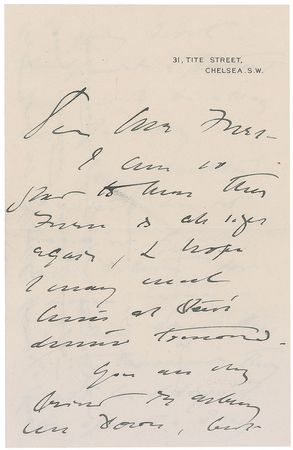 31, TITE STREET,
CHELSEA. S.W.
Dear Mrs
I am so
glad to hear that
is all right
again, & hope
I may meet
him at
dinner tomorrow.
You are very
kind in asking
me down, but